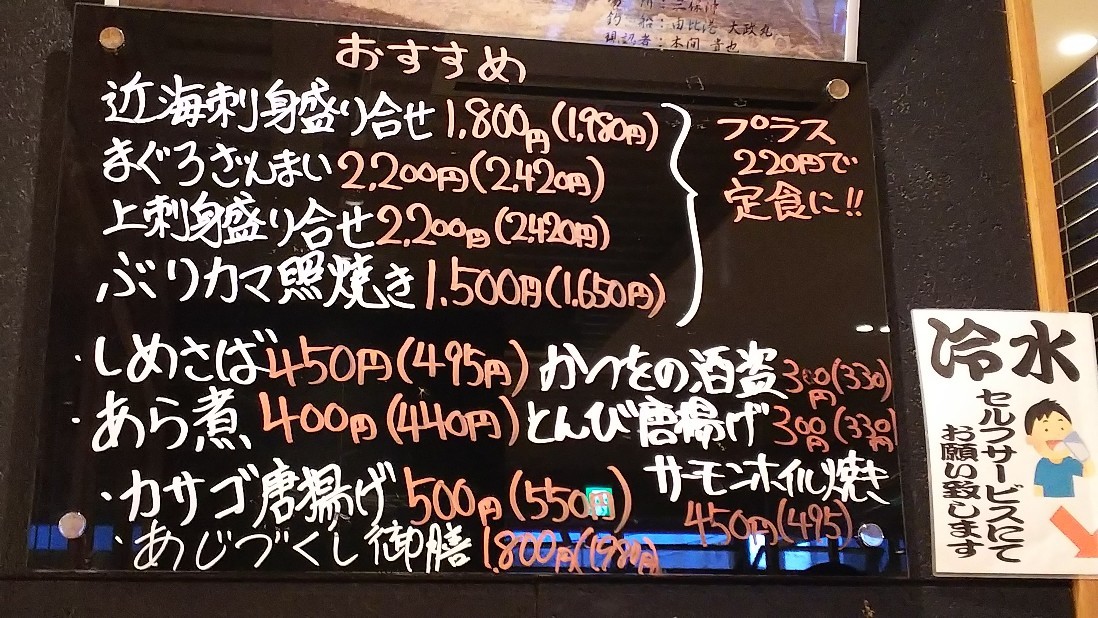 場所：三保沖
釣船：由比港 大政丸
現認者：本間 音也
おすすめ
近海刺身盛り合せ 1,800円(1,980円)
まぐろざんまい 2,200円(2,420円)
上刺身盛り合せ 2,200円(2,420円)
ぶりカマ照焼き 1,500円(1,650円)
プラス
220円で
定食に!!
・しめさば 450円(495円)
かつをの酒盗 300円(330)
・あら煮 400円(440円)
とんび唐揚げ 300円(330円)
・カサゴ唐揚げ 500円(550円)
サーモンホイル焼き
450円(495)
・あじづくし御膳 1,800円(1,980円)
冷水
セルフサービスにて
お願い致します